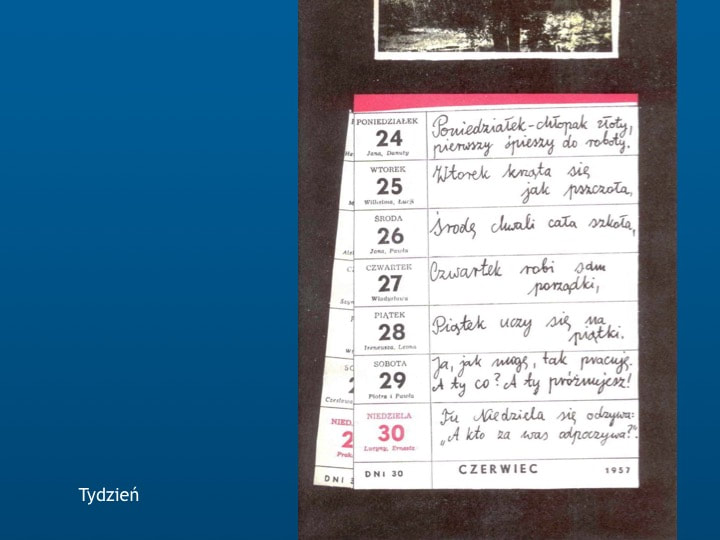 PONIEDZIAŁEK
24
Jana, Danuty
Poniedziałek-chłopak złoty,
pierwszy śpieszy do roboty.
WTOREK
25
Wilhelma, Łucji
Wtorek krząta się
jak pszczoła,
ŚRODA
26
Jana, Pawła
Środę chwali cała szkoła,
CZWARTEK
27
Władysława
Czwartek robi sam
porządki,
PIĄTEK
28
Ireneusza, Leona
Piątek uczy się na
piątki.
SOBOTA
29
Piotra i Pawła
Ja, jak mogę, tak pracuję.
A ty co? A ty próżnujesz!
NIEDZIELA
30
Lucyny, Ernesta
Tu Niedziela się odzywa:
„A kto za was odpoczywa?"
DNI 30
CZERWIEC
1957
DNI
Tydzień